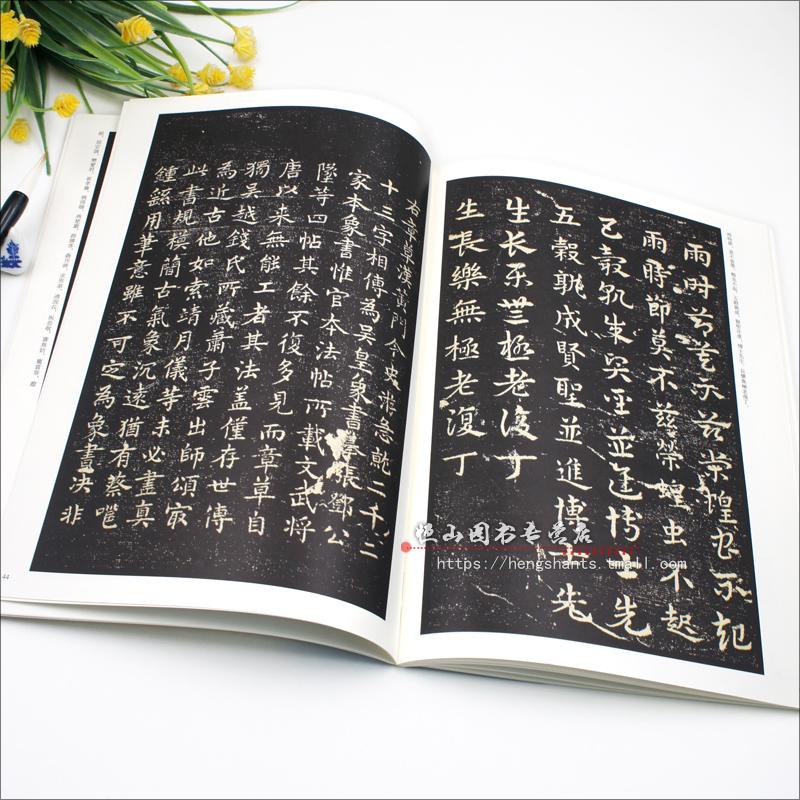 雨时节莫不兹荣蝗虫不起
雨時節莫不茲榮蝗虫不起
五穀孰成賢聖並進博士先
五穀孰成賢聖並進博士先
生长乐無極老復丁
生長樂無極老復丁
雨時節，莫不茲榮。蝗虫不起，五穀孰成。賢聖並進，博士先生。長樂無極老復丁。
右章草漢黃門令史游急就二千
十三字相傳為吳皇象書摹張鄧公
家本象書惟官本法帖所載文武將
墜等四帖其餘不復多見而章草自
唐以来無能工者其法蓋僅存世傳
獨吳越錢氏所藏蕭子雲出師頌寂
為近古他如索靖月儀等未必盡真
此書規模簡古氣象沉遠猶有蔡邕
鍾繇用筆意雖不可定為象書决非
44
恒山图书专营店
https://hengshants.tmall.com